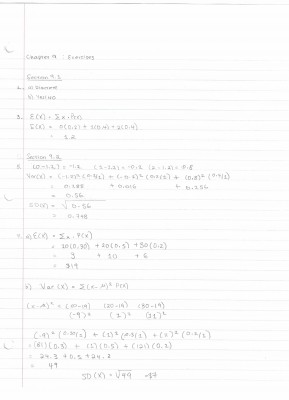 Chapter 9 : Exercises
Section 9.2
a) Diamond
b) Yes; 40
3. E(X) = Σx · P(x)
E(X) = 0(0.2) + 1(0.4) + 2(0.4)
= 1.2
Section 9.3
5. (0-1.2) = -1.2 (1-1.2) = -0.2 (2-1.2) = 0.8
Var(X) = (-1.2)² (0.2) + (-0.2)² (0.4) + (0.8)² (0.4)
= 0.288 + 0.016 + 0.256
= 0.56
SD(X) = √0.56
= 0.748
7. a) E(X) = Σx · P(x)
= 10(0.30) + 20(0.5) + 30(0.2)
= 3 + 10 + 6
= $19
b) Var (X) = Σ(x-μ)² P(x)
(x-μ)² = (10-19) (20-19) (30-19)
(-9)² (1)² (11)²
= (81)(0.3) + (1)(0.5) + (121)(0.2)
= 24.3 + 0.5 + 24.2
= 49
SD (X) = √49 = $7